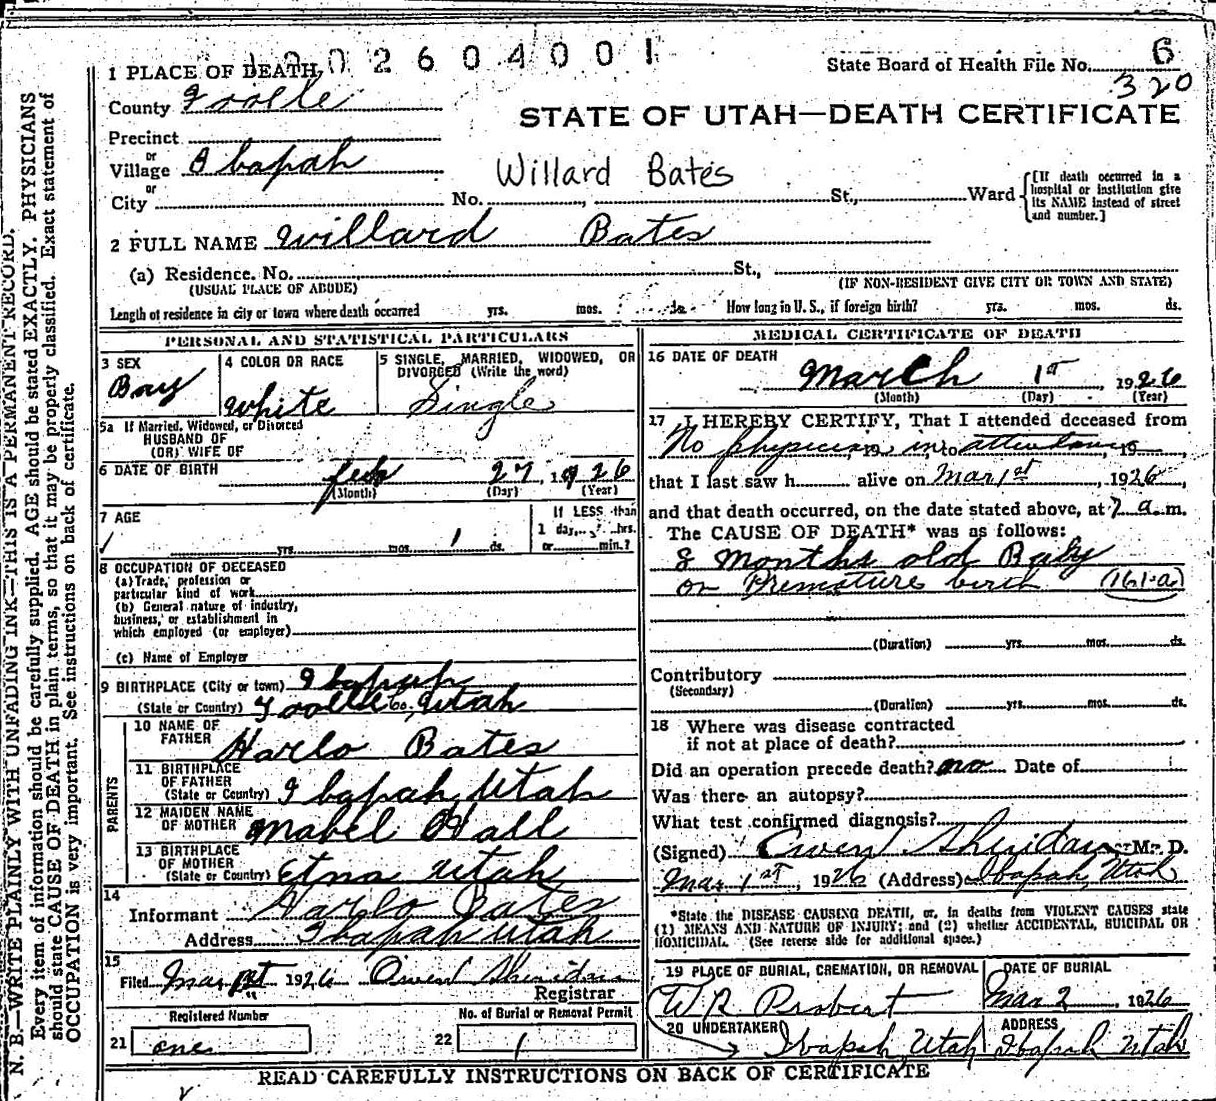 1 PLACE OF DEATH 1902604001
State Board of Health File No. 6
320
County Tooele
STATE OF UTAH—DEATH CERTIFICATE
Precinct
or
Village Ibapah
Willard Bates
or
City No. St., Ward
[If death occurred in a hospital or institution give its NAME instead of street and number.]
2 FULL NAME Willard Bates
(a) Residence. No. St.,
(USUAL PLACE OF ABODE) (IF NON-RESIDENT GIVE CITY OR TOWN AND STATE)
Length of residence in city or town where death occurred yrs. mos. ds. How long in U. S., if foreign birth? yrs. mos. ds.
PERSONAL AND STATISTICAL PARTICULARS
3 SEX
Boy
4 COLOR OR RACE
White
5 SINGLE, MARRIED, WIDOWED, OR
DIVORCED (Write the word)
Single
5a If Married, Widowed, or Divorced
HUSBAND OF
(OR) WIFE OF
6 DATE OF BIRTH Feb 27, 1926
(Month) (Day) (Year)
7 AGE
yrs. mos. 1 ds.
If LESS than
1 day, hrs.
or min.?
8 OCCUPATION OF DECEASED
(a) Trade, profession or
particular kind of work
(b) General nature of industry,
business, or establishment in
which employed (or employer)
(c) Name of Employer
9 BIRTHPLACE (City or town) Ibapah
(State or Country) Tooele Co, Utah
PARENTS
10 NAME OF
FATHER Harlo Bates
11 BIRTHPLACE
OF FATHER
(State or Country) Ibapah, Utah
12 MAIDEN NAME
OF MOTHER Mabel Hall
13 BIRTHPLACE
OF MOTHER
(State or Country) Etna Utah
14
Informant Harlo Bates
Address Ibapah Utah
15
Filed Mar 1st 1926 Owen Sheridan
Registrar
Registered Number
21 one
No. of Burial or Removal Permit
22 1
MEDICAL CERTIFICATE OF DEATH
16 DATE OF DEATH
March 1st, 1926
(Month) (Day) (Year)
17 I HEREBY CERTIFY, That I attended deceased from
No physician, 19 in to attendance, 19
that I last saw h alive on Mar 1st, 1926,
and that death occurred, on the date stated above, at 7 a. m.
The CAUSE OF DEATH* was as follows:
8 Months old Baby
or Premature birth (161-a)
(Duration) yrs. mos. ds.
Contributory
(Secondary)
(Duration) yrs. mos. ds.
18 Where was disease contracted
if not at place of death?
Did an operation precede death? no Date of
Was there an autopsy?
What test confirmed diagnosis?
(Signed) Owen Sheridan M. D.
Mar 1st, 1926 (Address) Ibapah, Utah
*State the DISEASE CAUSING DEATH, or, in deaths from VIOLENT CAUSES state
(1) MEANS AND NATURE OF INJURY; and (2) whether ACCIDENTAL, SUICIDAL OR
HOMICIDAL. (See reverse side for additional space.)
19 PLACE OF BURIAL, CREMATION, OR REMOVAL
W R Probert
DATE OF BURIAL
Mar 2, 1926
20 UNDERTAKER
Ibapah, Utah
ADDRESS
Ibapah Utah
READ CAREFULLY INSTRUCTIONS ON BACK OF CERTIFICATE
N. B.—WRITE PLAINLY WITH UNFADING INK—THIS IS A PERMANENT RECORD.
Every item of information should be carefully supplied. AGE should be stated EXACTLY. PHYSICIANS
should state CAUSE OF DEATH in plain terms, so that it may be properly classified. Exact statement of
OCCUPATION is very important. See instructions on back of certificate.